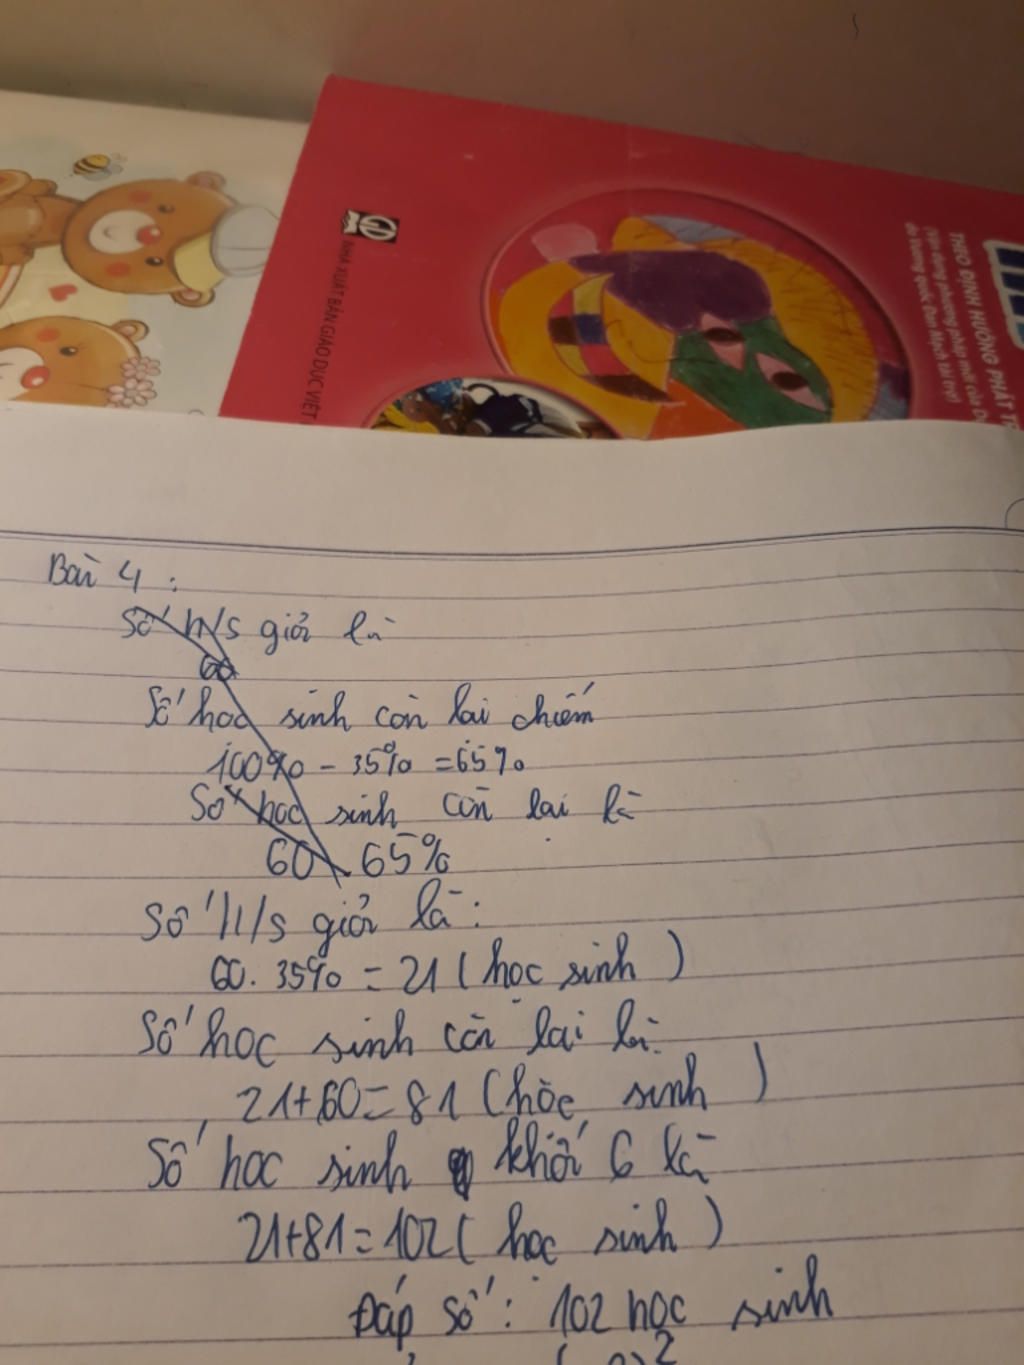 NHÀ XUẤT BẢN GIÁO DỤC VIỆT
THEO ĐỊNH HƯỚNG PHÁT TR
(Vận dụng phương pháp mới của Đ
do Vương quốc Đan Mạch tài trợ)
Bài 4 :
Số h/s giỏi là
60
Số học sinh còn lại chiếm
100% - 35% = 65%
Số học sinh còn lại là
60 . 65%
Số h/s giỏi là :
60. 35% = 21 ( học sinh )
Số học sinh còn lại là
21+60=81 ( học sinh )
Số học sinh khối 6 là
21+81=102 ( học sinh )
Đáp số : 102 học sinh